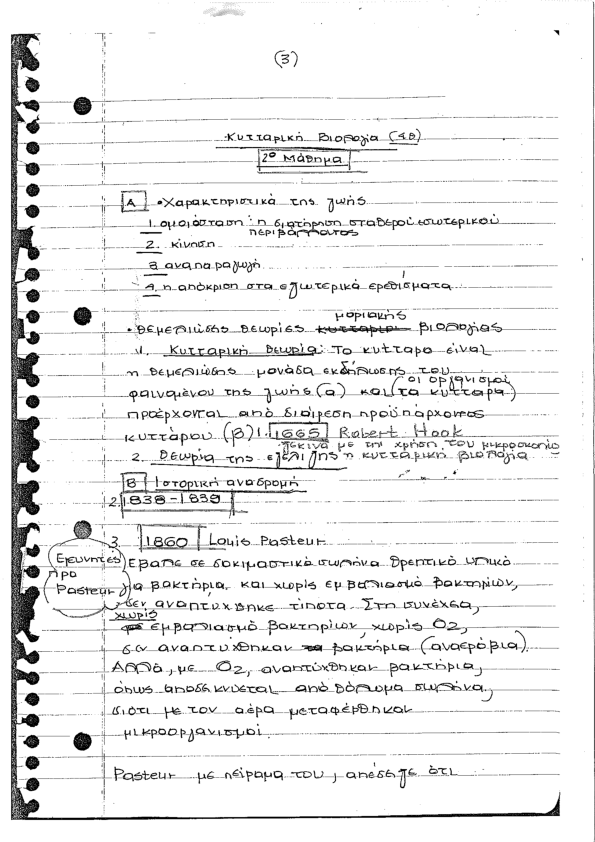 (3)
Κυτταρική Βιολογία (4Θ)
2º Μάθημα
Α • Χαρακτηριστικά της ζωής
1. ομοιόσταση: η διατήρηση σταθερού εσωτερικού
περιβάλλοντος
2. κίνηση
3. αναπαραγωγή
4. η απόκριση στα εξωτερικά ερεθίσματα
μοριακής
• Θεμελιώδεις θεωρίες βιολογίας
1. Κυτταρική θεωρία: Το κύτταρο είναι
η θεμελιώδης μονάδα εκδήλωσης του
φαινομένου της ζωής (α) και (τα κύτταρα)
(οι οργανισμοί
προέρχονται από διαίρεση προϋπάρχοντος
κυττάρου (β) 1. 1665 Robert Hook
ξεκινά με την χρήση του μικροσκοπίο
2. Θεωρία της εξέλιξης η κυτταρική βιολογία
Β Ιστορική αναδρομή
2. 1838-1839
3. 1860 Louis Pasteur
Ερευνητές
προ
Pasteur
Εβαλε σε δοκιμαστικό σωλήνα θρεπτικό υλικό
για βακτήρια, και χωρίς εμβολιασμό βακτηρίων,
δεν αναπτύχθηκε τίποτα. Στη συνέχεα,
χωρίς
εμβολιασμό βακτηρίων, χωρίς Ο2,
δεν αναπτύχθηκαν βακτήρια (αναερόβια).
Αλλά, με Ο2, αναπτύχθηκαν βακτήρια,
όπως αποδεικνύεται από θόλωμα σωλήνα,
διότι με τον αέρα μεταφέρθηκαν
μικροοργανισμοί.
Pasteur με πείραμα του, απέδειξε ότι